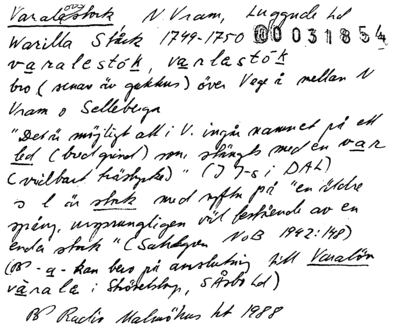 Varalastock, N Vram, Luggude hd
Warilla Ståck 1749-1750 00031854
varalestók, varlastók
bro (senare äv gckhus) över Vege å mellan N
Vram o Selleberga
"Det är möjligt att i V. ingår namnet på ett
led (bredgrind) som stängts med en var
(vridbart trästycke)" (I I-s i DAL)
s l är stock med syftn på "en äldre
spång, ursprungligen väl bestående av en
enda stock" (Sahlgren NoB 1942:148)
-a- kan bero på anslutning till Varalöv
varala i Strövelstorp, S Åsbo hd)
Radio Malmöhus ht 1988